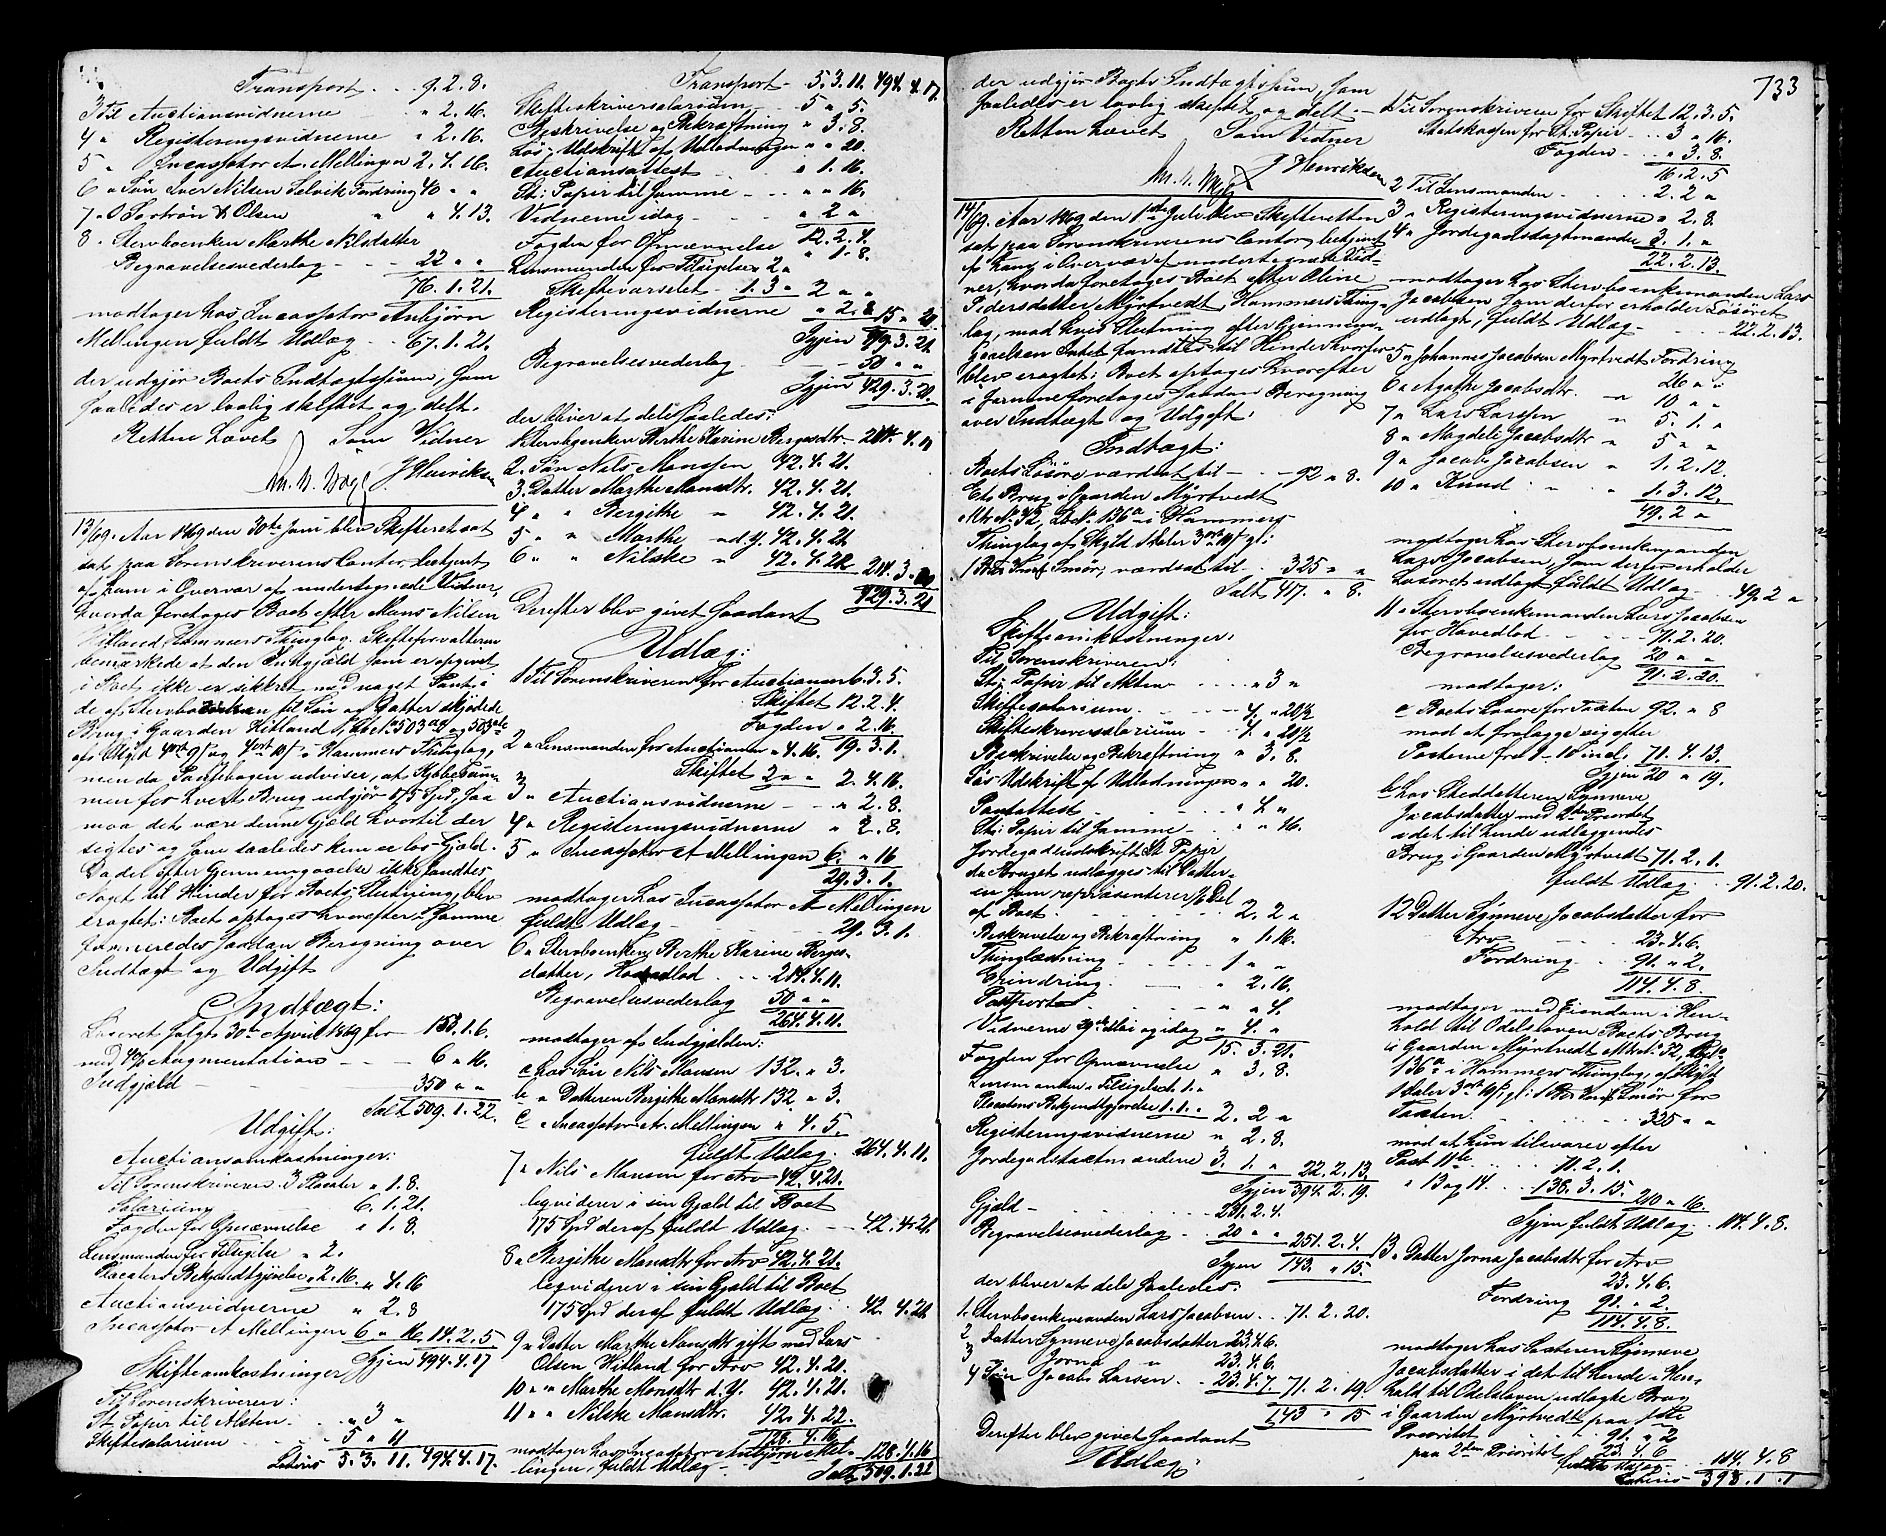 Transport . . 9. 2. 8.
3 Til Auctionsvidnerne " 2. 16.
4 " Registeringsvidnerne " 2. 16.
5 " Incassator A. Mellingen 2. 4. 16.
6 " Søn Iver Nilsen Selvik Fordring 40 " "
7 " O Sortrøn & Olsen " " 4. 13.
8. Stervboenken Marthe Nilsdatter
Begravelsesvederlag 22 " "
76. 1. 21.
modtager hos Incassator Anbjørn
Mellingen fuldt Udlæg . . 67. 1. 21.
der udgjør Boets Indtægtssum, som
saaledes er lovlig skiftet og delt.
Retten hævet Som Vidner
J Henriksen
13/69. Aar 1869 den 30te Juni blev Skifteret sat
paa Sorenskriverens Contor, betjent
af ham i Overvær af undertegnede Vidner,
hvorda foretoges Boet efter Mons Nilsen
Hitland, Hammers Thinglag. Skifteforvalteren
bemærkede at den Indgjæld som er opgivet
i Boet ikke er sikkret med noget Pant i
de af Stervboenken til Søn og Datter skjødede
Brug i Gaarden Hitland
af Skyld og i Hammers Thinglag,
men da Pantebogen udviser, at Kjøbesum-
men for hvert Brug udgjør 175 Spd, saa
maa det være denne Gjæld hvortil der
sigtes og som saaledes kun er løs Gjæld.
Da der efter Gjennemgaaelse ikke fandtes
Noget til Hinder for Boets Slutning, blev
eragtet: Boet optages hvorefter i Samme
formeredes saadan Beregning over
Indtægt og Udgift
Indtægt:
Løsøret solgt 30te April 1869 for 152. 1. 6.
med 4% Augmentation 6 " 16.
Indgjæld 350 " "
Salt 509. 1. 22.
Udgift:
Auctionsomkostninger:
Til Sorenskriveren 3 Placater " 1. 8.
Salarium 6. 1. 21.
Fogden for Opnævnelse " 1. 8.
Lensmanden for Tilsigelse " 2.
Placaters Bekjendtgjørelse " 2. 16. " 4. 16
Auctionsvidnerne " 2. 8
Incassator A Mellingen 6 " 16. 14. 2. 5
Igjen 494. 4. 17
Skifteomkostninger
Til Sorenskriveren:
St. Papir til Akten . . " 3 "
Skiftesalarium 5 " 11
Lateris 5. 3. 11. 494. 4. 17.
Transport . 5. 3. 11. 494. 4. 17.
Skifteskriversalarium 5 " 5.
Beskrivelse og Bekræftning " 3. 8.
Løs-Udskrift af Udlodningen " " 20.
Auctionsattest " 1. 16.
St: Papir til Samme " " 16.
Vidnerne idag " 2 "
12. 2. 4.
Fogden for Opnævnelse " 1. 8.
Lensmanden for Tilsigelsen 2 "
Skiftevarslet 1. 3 " 2 " "
Registeringsvidnerne " 2. 8 15 " 20
Igjen 479. 3. 21.
Begravelsesvederlag 50 " "
Igjen 429. 3. 21.
der bliver at dele saaledes:
1. Stervboenken Berthe Karine Bergesdtr. 214. 4. 11
2. Søn Nils Monssen 42. 4. 21.
3. Datter Marthe Monsdtr. 42. 4. 21.
4 " " Bergithe " 42. 4. 21.
5 " " Marthe " d. y. 42. 4. 21
6 " " Nilske " 42. 4. 22 214. 3. 10
429. 3. 21
Derefter blev givet saadant
Udlæg:
1 Til Sorenskriveren for Auctionen 6. 3. 5.
Skiftet 12. 2. 4.
Fogden " 2. 16.
2 " Lensmanden for Auctionen " 4. 16. 19. 3. 1.
Skiftet 2 " " 2. 4. 16.
3 " Auctionsvidnerne " 2. 8.
4 " Registeringsvidnerne " 2. 8.
5 " Incassator A Mellingen 6 " 16
29. 3. 1.
modtager hos Incassator A Mellingen
fuldt Udlæg 29. 3. 1.
6 " Stervboenken Berthe Karine Berges-
datter, Hovedlod 214. 4. 11.
Begravelsesvederlag 50 " "
264. 4. 11.
modtager af Indgjælden:
a hos Søn Nils Monsen 132. " 3.
b " Datteren Bergithe Monsdtr 132 " 3.
c " Incassator A. Mellingen " 4. 5.
fuldt Udlæg 264. 4. 11.
7 " Nils Monsen for Arv 42. 4. 21.
leqviderer i sin Gjæld til Boet
175 Spd deraf fuldt Udlæg 42. 4. 21.
8 " Bergithe Monsdtr for Arv 42. 4. 21.
leqviderer i sin Gjæld til Boet
175 Spd deraf fuldt Udlæg 42. 4. 21.
9 " Datter Marthe Monsdtr gift med Lars
Olsen Hitland for Arv 42. 4. 21.
10 " " Marthe Monsdtr d. Y. 42. 4. 21.
11 " " Nilske Monsdtr. 42. 4. 22.
128. 4. 16
modtager hos Incassator Anbjørn Mel- 128. 4. 16
lingen, fuldt Udlæg Salt 509. 1. 22
733
der udgjør Boets Indtægtssum, som
saaledes er lovlig skiftet og delt
Retten hævet Som Vidner
J Henriksen
14/69. Aar 1869 den 1ste Juli blev Skifteretten
sat paa Sorenskriverens Contor, betjent
af ham i Overvær af undertegnede Vid-
ner, hvorda foretoges Boet efter Oline
Pedersdatter Myrtvedt, Hammers Thing-
lag, mod hvis Slutning efter Gjennem-
gaaelsen Intet fandtes til Hinder hvorfor
blev eragtet: Boet optages hvorefter
i Samme foretoges saadan Beregning
over Indtægt og Udgift:
Indtægt:
Boets Løsøre værdsat til 92 " 8.
Et Brug i Gaarden Myrtvedt
Mtr. No. 32, Lb No. 136a i Hammers
Thinglag af Skyld 1 daler 3 ort gl:
Smør, værdsat til . . 325 " "
Salt 417. " 8.
Udgift:
Skifteomkostninger:
Til Sorenskriveren:
St: Papir til Akten " 3 "
Skiftesalarium 4. " 20½
Skifteskriversalarium 4. " 20½
Beskrivelse og Bekræftning " 3. 8.
Løs-Udskrift af Udlodningen " " 20.
Pantattest " 4 "
St: Papir til Samme " " 16.
Jordegodsudskrift St Papir
da Bruget udlægges til Datter-
en som repræsenterer 1/6 Del
af Boet 2. 2 "
Beskrivelse og Bekræftning " 1. 16.
Thinglæsning 1 " "
Grindring " 2. 16.
Postporto " " 4.
Vidnerne 29de Mai og idag " 4. "
15. 3. 21.
Fogden for Opnævnelse " 3. 8.
Lensmanden " Tilsigelsen 1. "
Placatens Bekjendtgjørelse 1. 1. " 2. 2 "
Registeringsvidnerne " 2. 8.
Jordegodstaxtmændene 3. 1. " 22. 2. 13.
Igjen 394. 2. 19.
Gjæld 231. 2. 4.
Begravelsesvederlag 20 " " 251. 2. 4.
Igjen 143. " 15.
der bliver at dele saaledes:
1. Stervboenkemanden Lars Jacobsen . . 71. 2. 20.
2 Datter Synneve Jacobsdatter 23. 4. 6.
3 " Jorna " 23. 4. 6.
4 Søn Jacob Larsen 23. 4. 7 71. 2. 19.
143 " 15
Derefter blev givet saadant
Udlæg:
1 Til Sorenskriveren for Skiftet 12. 3. 5.
Statskassen for St. Papir 3 " 16.
Fogden " 3. 8.
16. 2. 5
2 Til Lensmanden 2. 2 "
3 " Registeringsvidnerne " 2. 8.
4 " Jordegodstaxtmændene 3. 1. "
22. 2. 13.
modtager hos Stervboenkemanden Lars
Jacobsen som derfor erholder Løsøret
udlagt, fuldt Udlæg 22. 2. 13.
5 " Johannes Jacobsen Myrtvedt Fordring
26 " "
6 " Agathe Jacobsdtr. " 10 " "
7 " Lars Larssen " 5. 1. "
8 " Magdeli Jacobsdtr " 5 " "
9 " Jacob Jacobsen " 1. 2. 12.
10 " Knud " " 1. 3. 12.
49. 2 "
modtager hos Stervboenkemanden
Lars Jacobsen, som derfor erholder
Løsøret udlagt, fuldt Udlæg 49. 2 "
11 " Stervboenkemanden Lars Jacobsen
for Hovedlod 71. 2. 20.
Begravelsesvederlag 20 " "
91. 2. 20.
modtager:
a Boets Løsøre for Taxten 92. " 8
mod at fralægge sig efter
Posterne fra 1–10 incl. 71. 4. 13.
Igjen 20 " 19.
b hos Steddatteren Synneve
Jacobsdatter med 2den Prioritet
i det til hende udlæggende
Brug i Gaarden Myrtvedt 71. 2. 1.
fuldt Udlæg . . 91. 2. 20.
12 Datter Synneve Jacobsdatter for
Arv 23. 4. 6.
Fordring 91. " 2.
114. 4. 8.
modtager med Eiendom i Hen-
hold til Odelsloven Boets Brug
i Gaarden Myrtvedt Mtr. No. 32, Lb No.
136a i Hammers Thinglag, af Skyld
1 daler 3 ort gl: Smør for
Taxten 325 " "
mod at hun tilsvarer efter
Post 11te 71. 2. 1.
" 13 og 14 138. 3. 15. 210 " 16.
Igjen fuldt Udlæg . . 114. 4. 8.
13 " Datter Jorna Jacobsdtr for Arv
23. 4. 6.
Fordring 91. " 2.
114. 4. 8.
modtager hos Søsteren Synneve
Jacobsdatter i det til hende i Hen-
hold til Odelsloven udlagte Brug
i Gaarden Myrtvedt paa 1ste
Prioritet 91. " 2
paa 2den Prioritet 23. 4. 6
fuldt Udlæg 114. 4. 8
Lateris 393. 1. 1